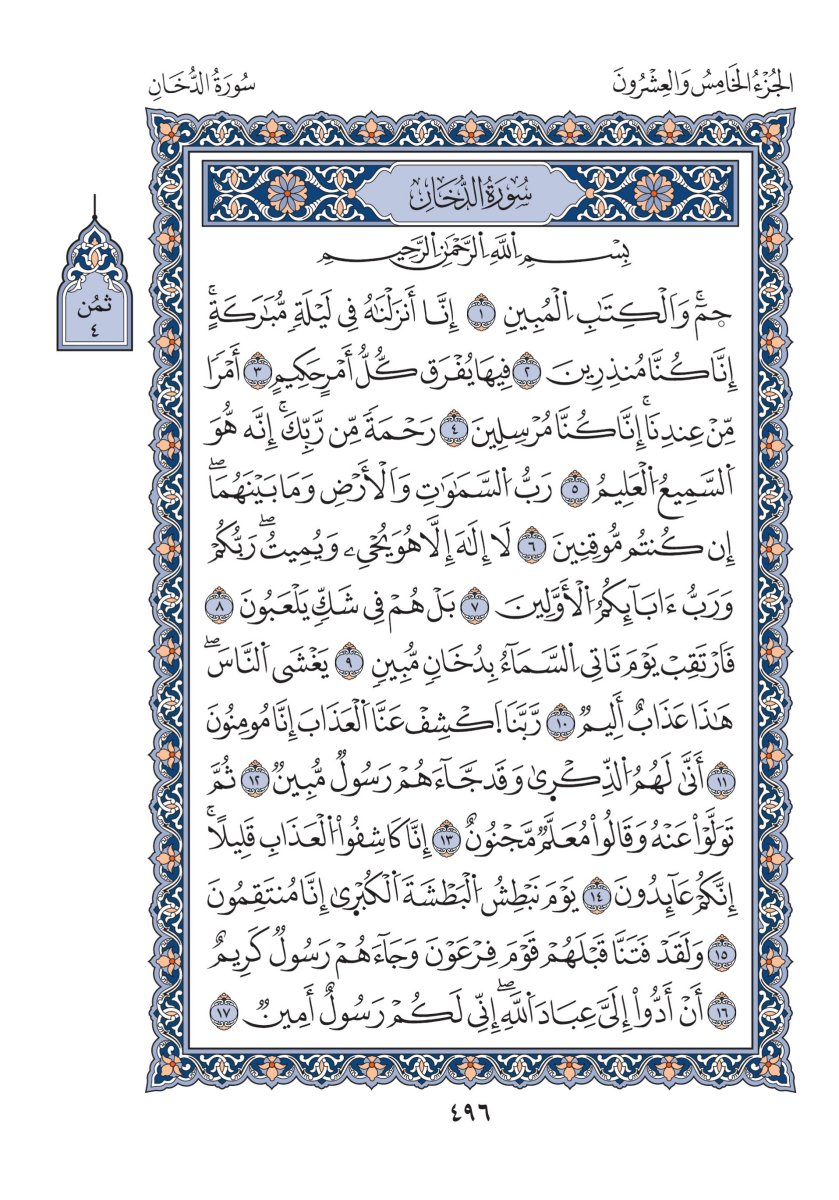 الجُزْءُ الخَامِسُ وَالعِشْرُونَ
سُورَةُ الدُّخَانِ
سُورَةُ الدُّخَانِ
بِسْمِ اِللَّهِ اِلرَّحْمَٰنِ اِلرَّحِيمِ
حمٓۚ وَالْكِتَٰبِ اِلْمُبِينِ ١ إِنَّا أَنزَلْنَٰهُ فِي لَيْلَةٖ مُّبَٰرَكَةٍۚ
إِنَّا كُنَّا مُنذِرِينَ ٢ فِيهَا يُفْرَق كُّلُّ أَمْرٍ حَكِيمٍ ٣ أَمْرٗا
مِّنْ عِندِنَاۚ إِنَّا كُنَّا مُرْسِلِينَ ٤ رَحْمَةٗ مِّن رَّبِّكَۚ إِنَّه هُّوَ
اَلسَّمِيعُ اُلْعَلِيمُ ٥ رَبُّ اُلسَّمَٰوَٰتِ وَالْأَرْضِ وَمَا بَيْنَهُمَاۖ
إِن كُنتُم مُّوقِنِينَ ٦ لَا إِلَٰهَ إِلَّا هُوَ يُحْيِۦ وَيُمِيتُۖ رَبُّكُمْ
وَرَبُّ ءَابَآئِكُمُ اُلْأَوَّلِينَ ٧ بَلْ هُمْ فِي شَكّٖ يَلْعَبُونَ ٨
فَارْتَقِبْ يَوْمَ تَاتِي اِلسَّمَآءُ بِدُخَانٖ مُّبِينٖ ٩ يَغْشَى اَلنَّاسَۖ
هَٰذَا عَذَابٌ أَلِيمٞ ١٠ رَّبَّنَا اَ۪كْشِفْ عَنَّا اَلْعَذَابَ إِنَّا مُومِنُونَ
١١ أَنَّىٰ لَهُمُ اُلذِّكْر۪ىٰ وَقَد جَّآءَهُمْ رَسُولٞ مُّبِينٞ ١٢ ثُمَّ
تَوَلَّوْاْ عَنْهُ وَقَالُواْ مُعَلَّمٞ مَّجْنُونٌ ١٣ إِنَّا كَاشِفُواْ اُلْعَذَابِ قَلِيلًاۚ
إِنَّكُمْ عَآئِدُونَ ١٤ يَوْمَ نَبْطِشُ اُلْبَطْشَةَ اَلْكُبْر۪ىٰ إِنَّا مُنتَقِمُونَ
١٥ وَلَقَدْ فَتَنَّا قَبْلَهُمْ قَوْمَ فِرْعَوْنَ وَجَآءَهُمْ رَسُولٞ كَرِيمٌ
١٦ أَنْ أَدُّواْ إِلَيَّ عِبَادَ اَللَّهِۖ إِنِّي لَكُمْ رَسُولٌ أَمِينٞ ١٧
ثمُن
٤
٤٩٦